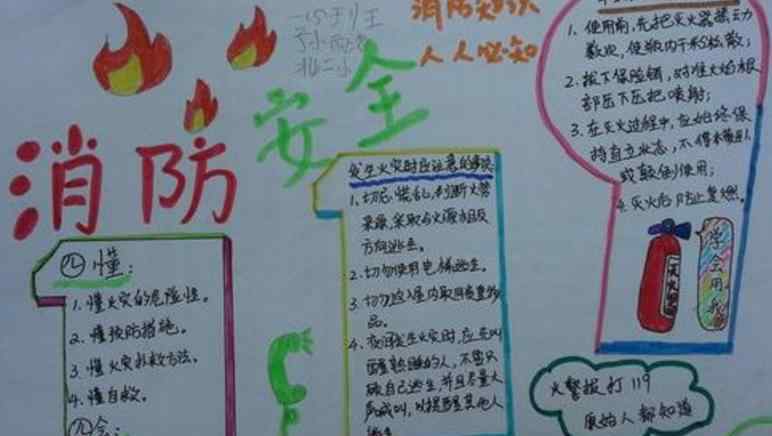 消防知识
人人必知
消防安全
四懂:
1. 懂火灾的危险性。
2. 懂预防措施。
3. 懂火灾扑救方法。
4. 懂自救。
四会:
发生火灾时应注意的事项
1. 切忌慌乱,判断火势
来源,采取与火源相反
方向逃生。
2. 切勿使用电梯逃生。
3. 切勿返入屋内取回贵重物
品。
4. 夜间发生火灾时,应先叫
醒熟睡的人,不要只
顾自己逃生,并且尽量大
声喊叫,以提醒其他人
逃生
1. 使用前,先把灭火器摇动
数次,使瓶内干粉松散;
2. 拔下保险销,对准火焰根
部压下压把喷射;
3. 在灭火过程中,应始终保
持直立状态,不得横卧
或颠倒使用;
4. 灭火后防止复燃。
灭火器
学会用我
火警拨打 119
原始人都知道